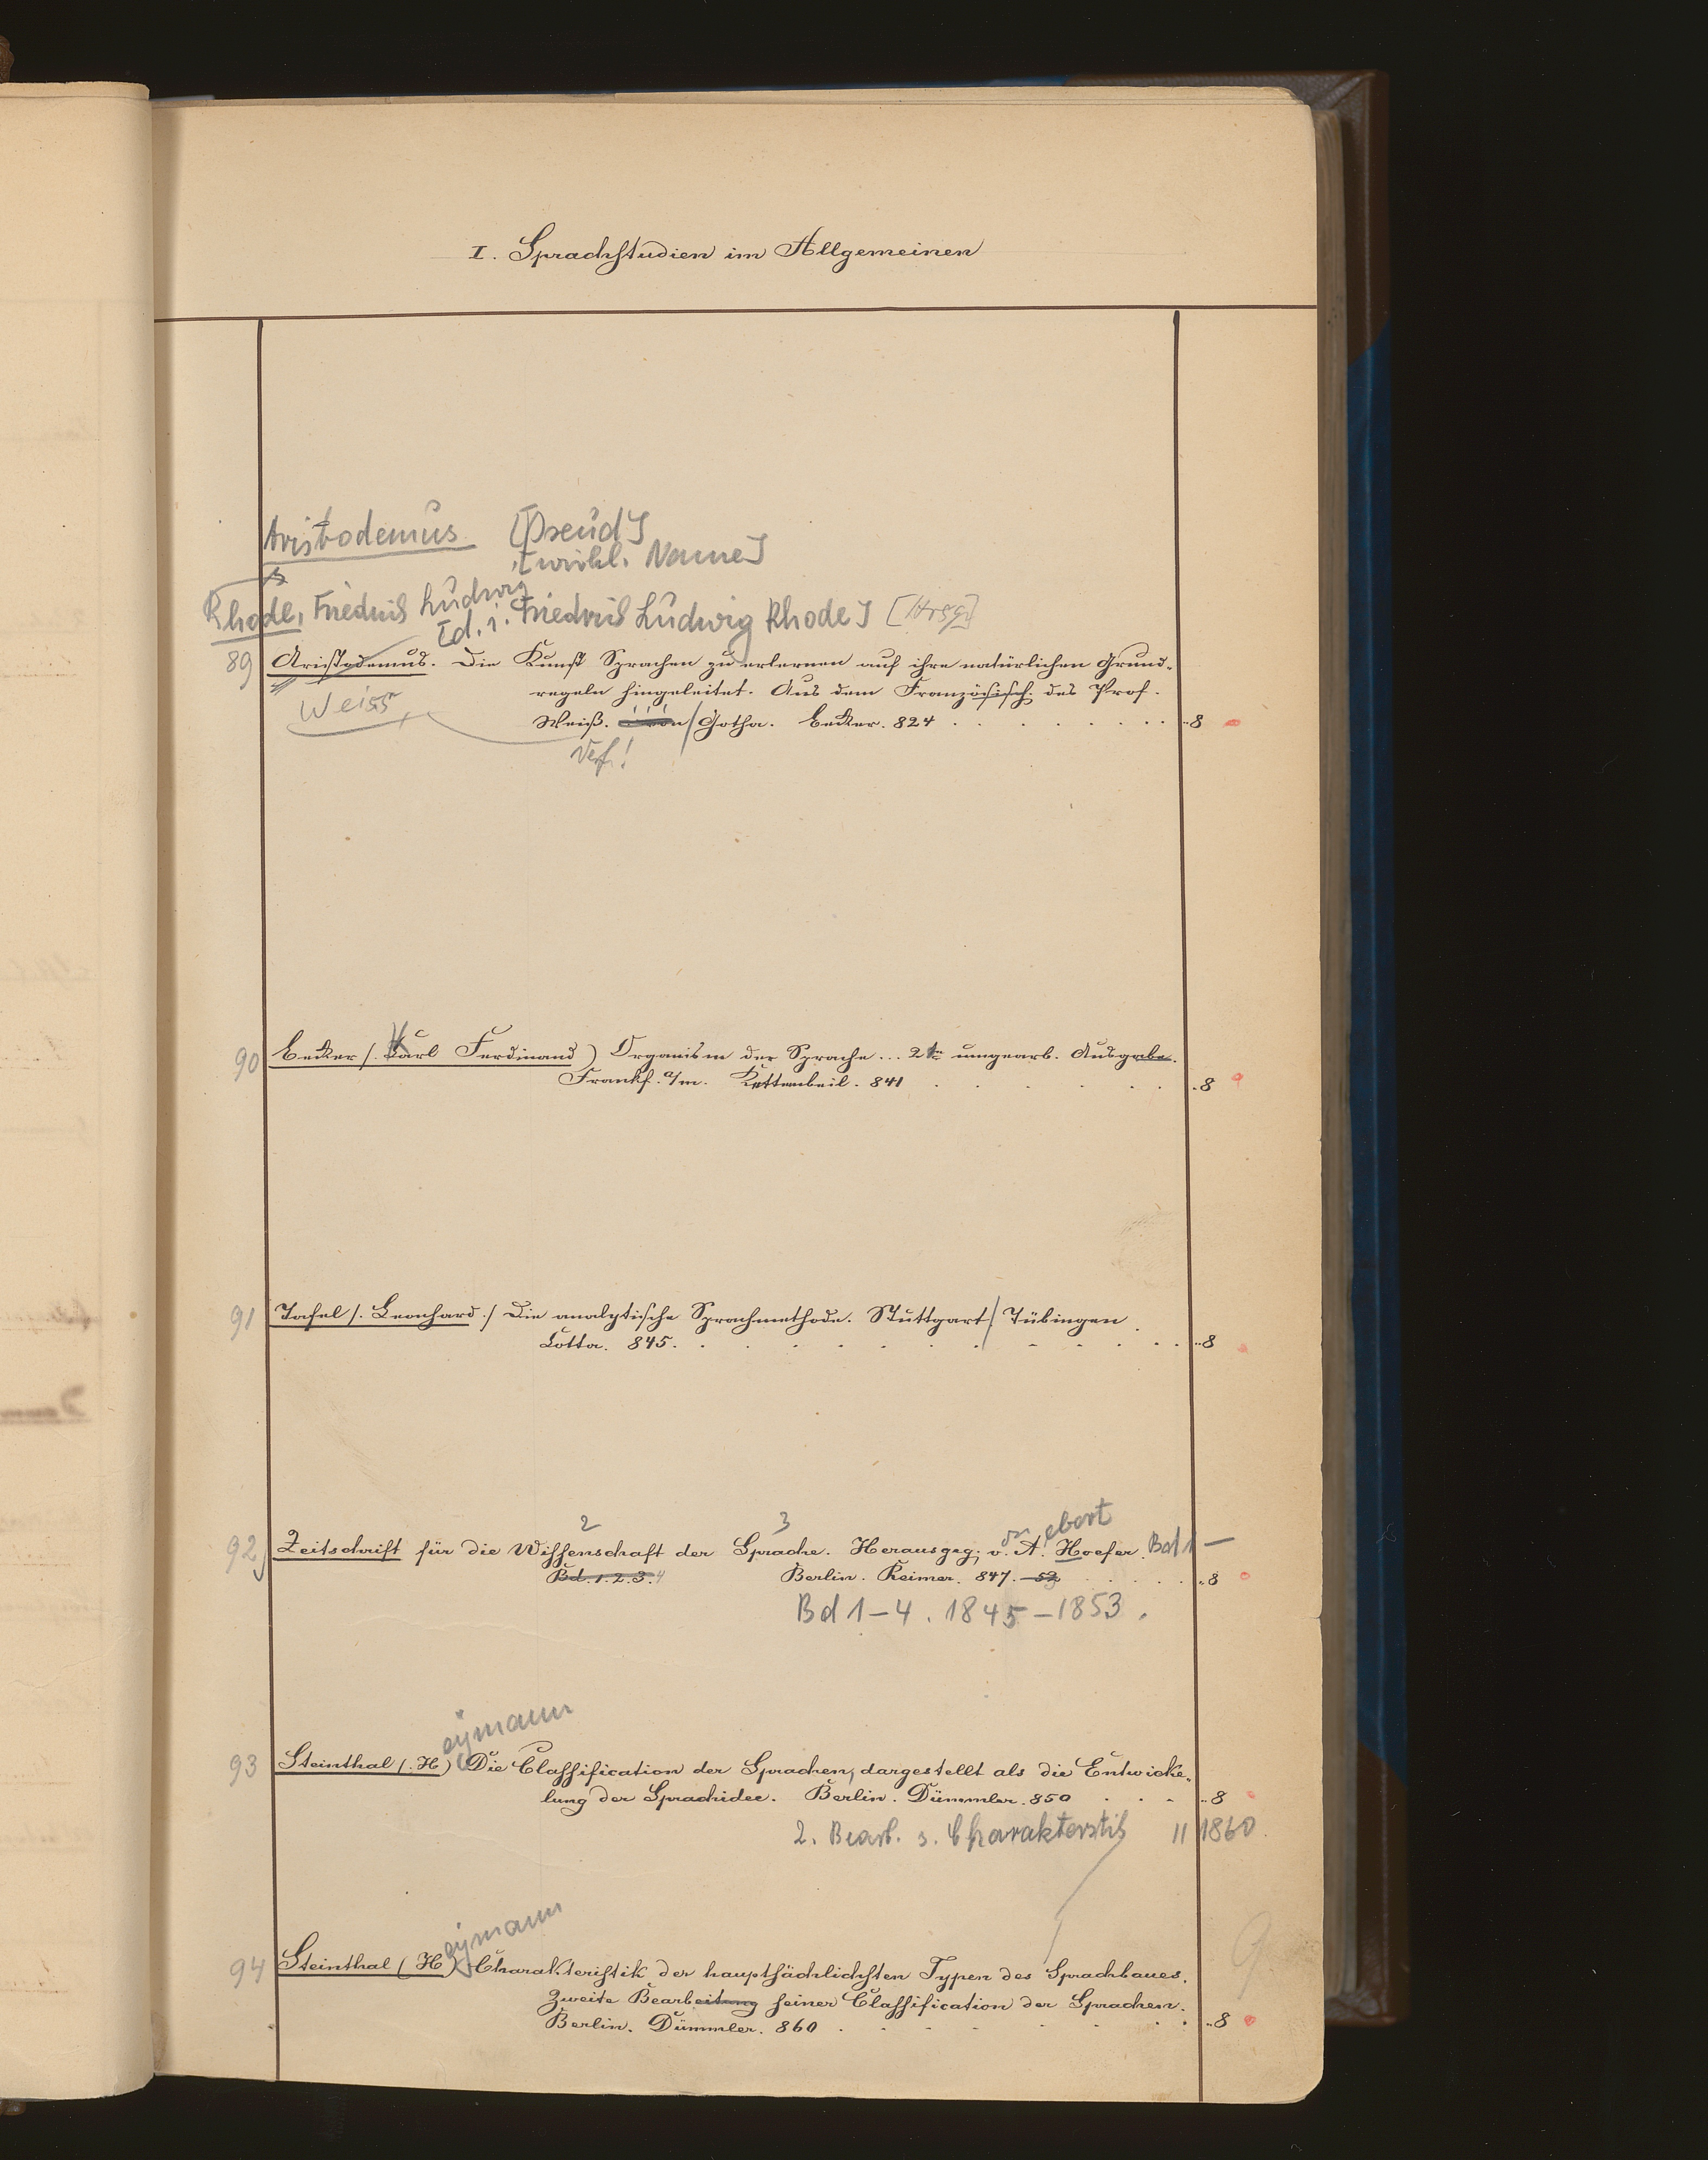 I. Sprachstudien im Allgemeinen
Aristodemus [Pseud]
[wirkl. Name]
Rhode, Friedrich Ludwig
[d. i. Friedrich Ludwig Rhode] [Hrsg.]
89 Aristodemus. Die Kunst Sprachen zu erlernen auf ihre natürlichen Grund-
regeln hingeleitet. Aus dem Französisch. des Prof.
Weiss
Weiß. Gotha. Becker. 824 . . . . . . . . 8
Verf!
90 Becker /. Karl Ferdinand) Organism der Sprache... 2te umgearb. Ausgabe.
Frankf. a/m. Kettenbeil. 841 . . . . . . 8
91 Tafel /. Leonhard ./ Die analytische Sprachmethode. Stuttgart/Tübingen
Cotta. 845. . . . . . . . . . . . 8
2 3 ebert
92 Zeitschrift für die Wissenschaft der Sprache. Herausgeg. v. A. Hoefer. Bd 1 —
Bd. 1. 2. 3. 4 Berlin. Reimer. 847. — 52 . . . . . 8
Bd 1 – 4. 1845 – 1853.
eymann
93 Steinthal (. H) Die Classification der Sprachen, dargestellt als die Entwicke-
lung der Sprachidee. Berlin. Dümmler. 850 . . . 8
2. Bearb. s. Charakteristik 11 1860.
eymann
94 Steinthal (H) Charakteristik der hauptsächlichsten Typen des Sprachbaues.
Zweite Bearbeitung seiner Classification der Sprachen.
Berlin. Dümmler. 860 . . . . . . . . 8